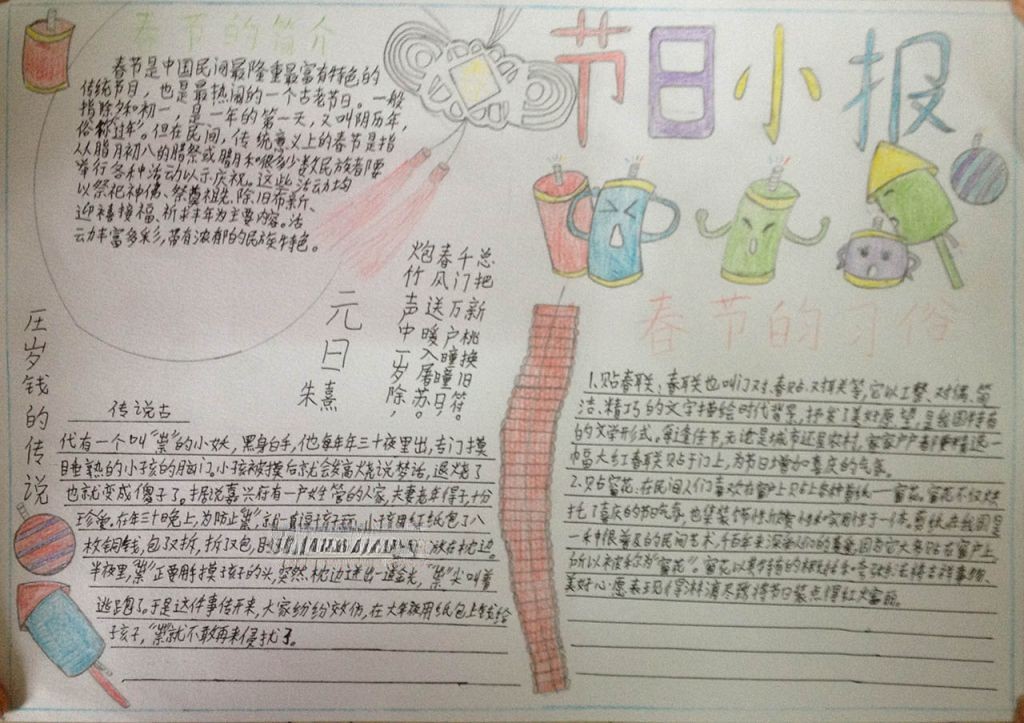 节日小报
春节的简介
春节是中国民间最隆重最富有特色的
传统节日，也是最热闹的一个古老节日。一般
指除夕和初一，是一年的第一天，又叫阴历年，
俗称过年。但在民间，传统意义上的春节是指
从腊月初八的腊祭或腊月
举行各种活动以示庆祝。这些活动均
以祭祀神佛、祭奠祖先、除旧布新、
迎禧接福、祈求丰年为主要内容。活
动丰富多彩，带有浓郁的民族特色。
元日
朱熹
炮竹声中一岁除，
春风送暖入屠苏。
千门万户曈曈日，
总把新桃换旧符。
压岁钱的传说
传说古
代有一个叫“祟”的小妖，黑身白手，他每年年三十夜里出，专门摸
睡熟的小孩的脑门。小孩被摸后就会发高烧说梦话，退烧了
也就变成傻子了。据说嘉兴府有一户姓管的人家，夫妻老年得子，十分
珍重。在年三十晚上，为防止“祟”用红纸包了八
枚铜钱，包了又拆，拆了又包，放在枕边。
半夜里，“祟”正要用手摸孩子的头，突然枕边迸出一道金光，“祟”尖叫着
逃跑了。于是这件事传开来，大家纷纷效仿，在大年夜用纸包上钱给
孩子，“祟”就不敢再来侵扰了。
春节的习俗
1.贴春联：春联也叫门对、春贴、对联等，它以工整、对偶、简
洁、精巧的文字描绘时代背景，抒发了美好愿望，是我国特有
的文学形式。每逢佳节，无论是城市还是农村，家家户户都要精选一
幅大红春联贴于门上，为节日增加喜庆的气氛。
2.贴窗花：在民间人们喜欢在窗户上贴上各种剪纸——窗花。窗花不仅烘
托了喜庆的节日气氛，也集装饰性、欣赏性和实用性于一体。剪纸在我国是
一种很普及的民间艺术，千百年来深受人们的喜爱，因为它大多贴在窗户上
所以被称为“窗花”。窗花以其特有的将吉祥事物、
美好心愿表现得淋漓尽致，将节日装点得红火富丽。